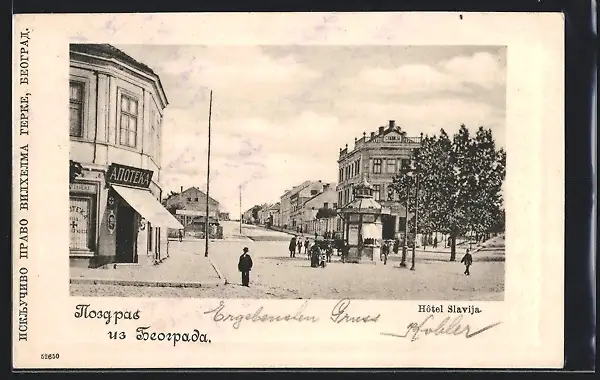 ИСКЉУЧИВО ПРАВО ВИЛХЕЛМА ГЕРКЕ, БЕОГРАД.
АПОТЕКА
Hôtel Slavija
Поздрав
из Београда.
Ergebensten Gruss
52650